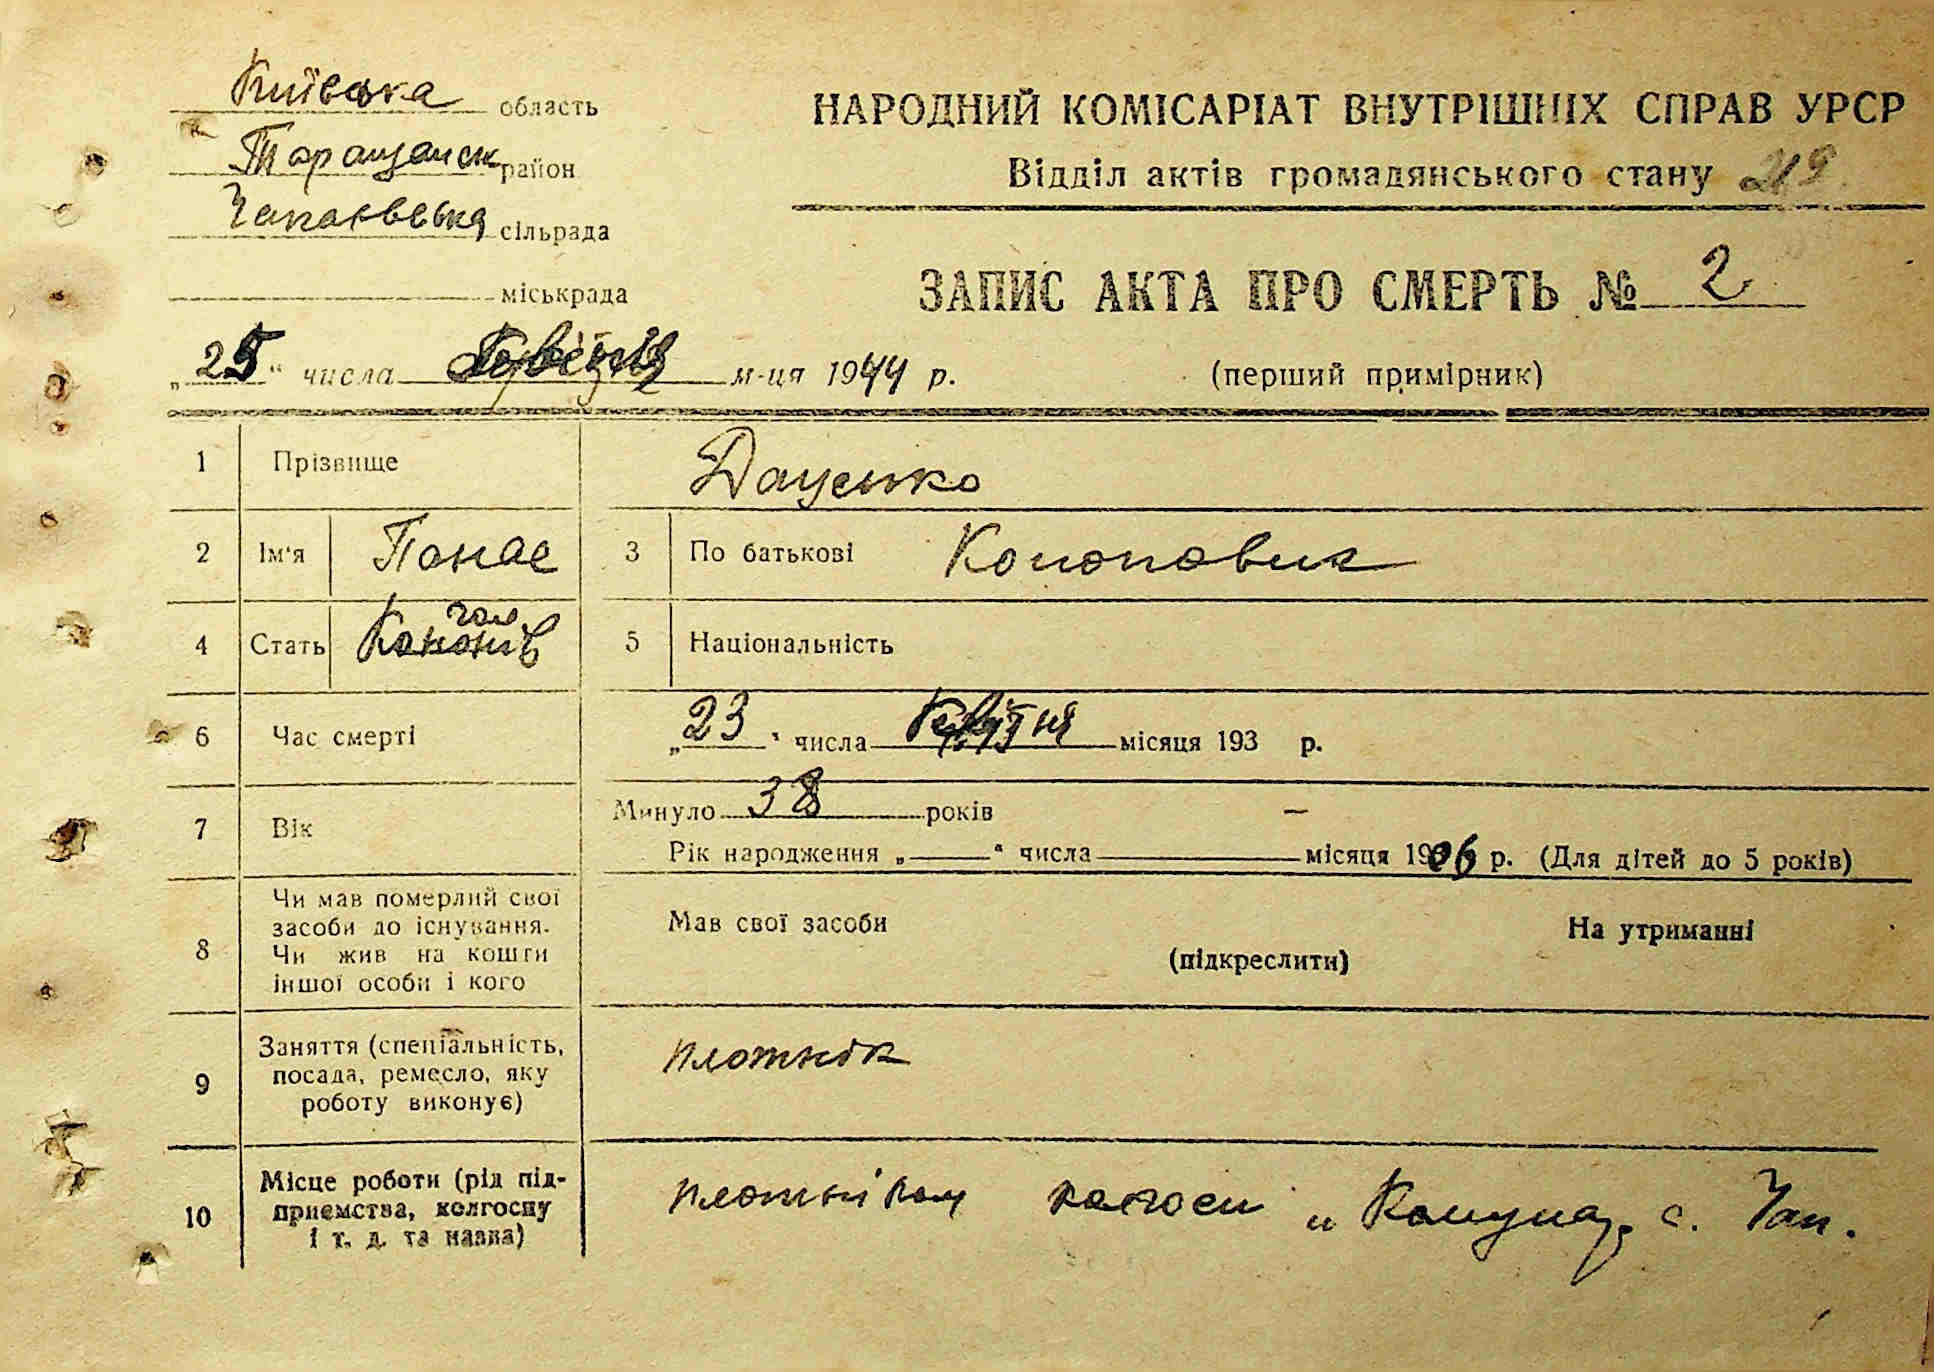 Київська область
Таращанськ район
Чапаєвська сільрада
міськрада
НАРОДНИЙ КОМІСАРІАТ ВНУТРІШНІХ СПРАВ УРСР
Відділ актів громадянського стану
ЗАПИС АКТА ПРО СМЕРТЬ № 2
(перший примірник)
„25“ числа м-ця 1944 р.
1 Прізвище Даценко
2 Ім'я Панас 3 По батькові Кононович
4 Стать чол Кононів 5 Національність
6 Час смерті „23“ числа Квітня місяця 193 р.
7 Вік Минуло 38 років
Рік народження „ “ числа місяця 1906 р. (Для дітей до 5 років)
8 Чи мав померлий свої
засоби до існування.
Чи жив на кошти
іншої особи і кого
Мав свої засоби
(підкреслити)
На утриманні
9 Заняття (спеціальність,
посада, ремесло, яку
роботу виконує)
плотнік
10 Місце роботи (рід під-
приємства, колгоспу
і т. д. та назва)
плотніком с. Чап.